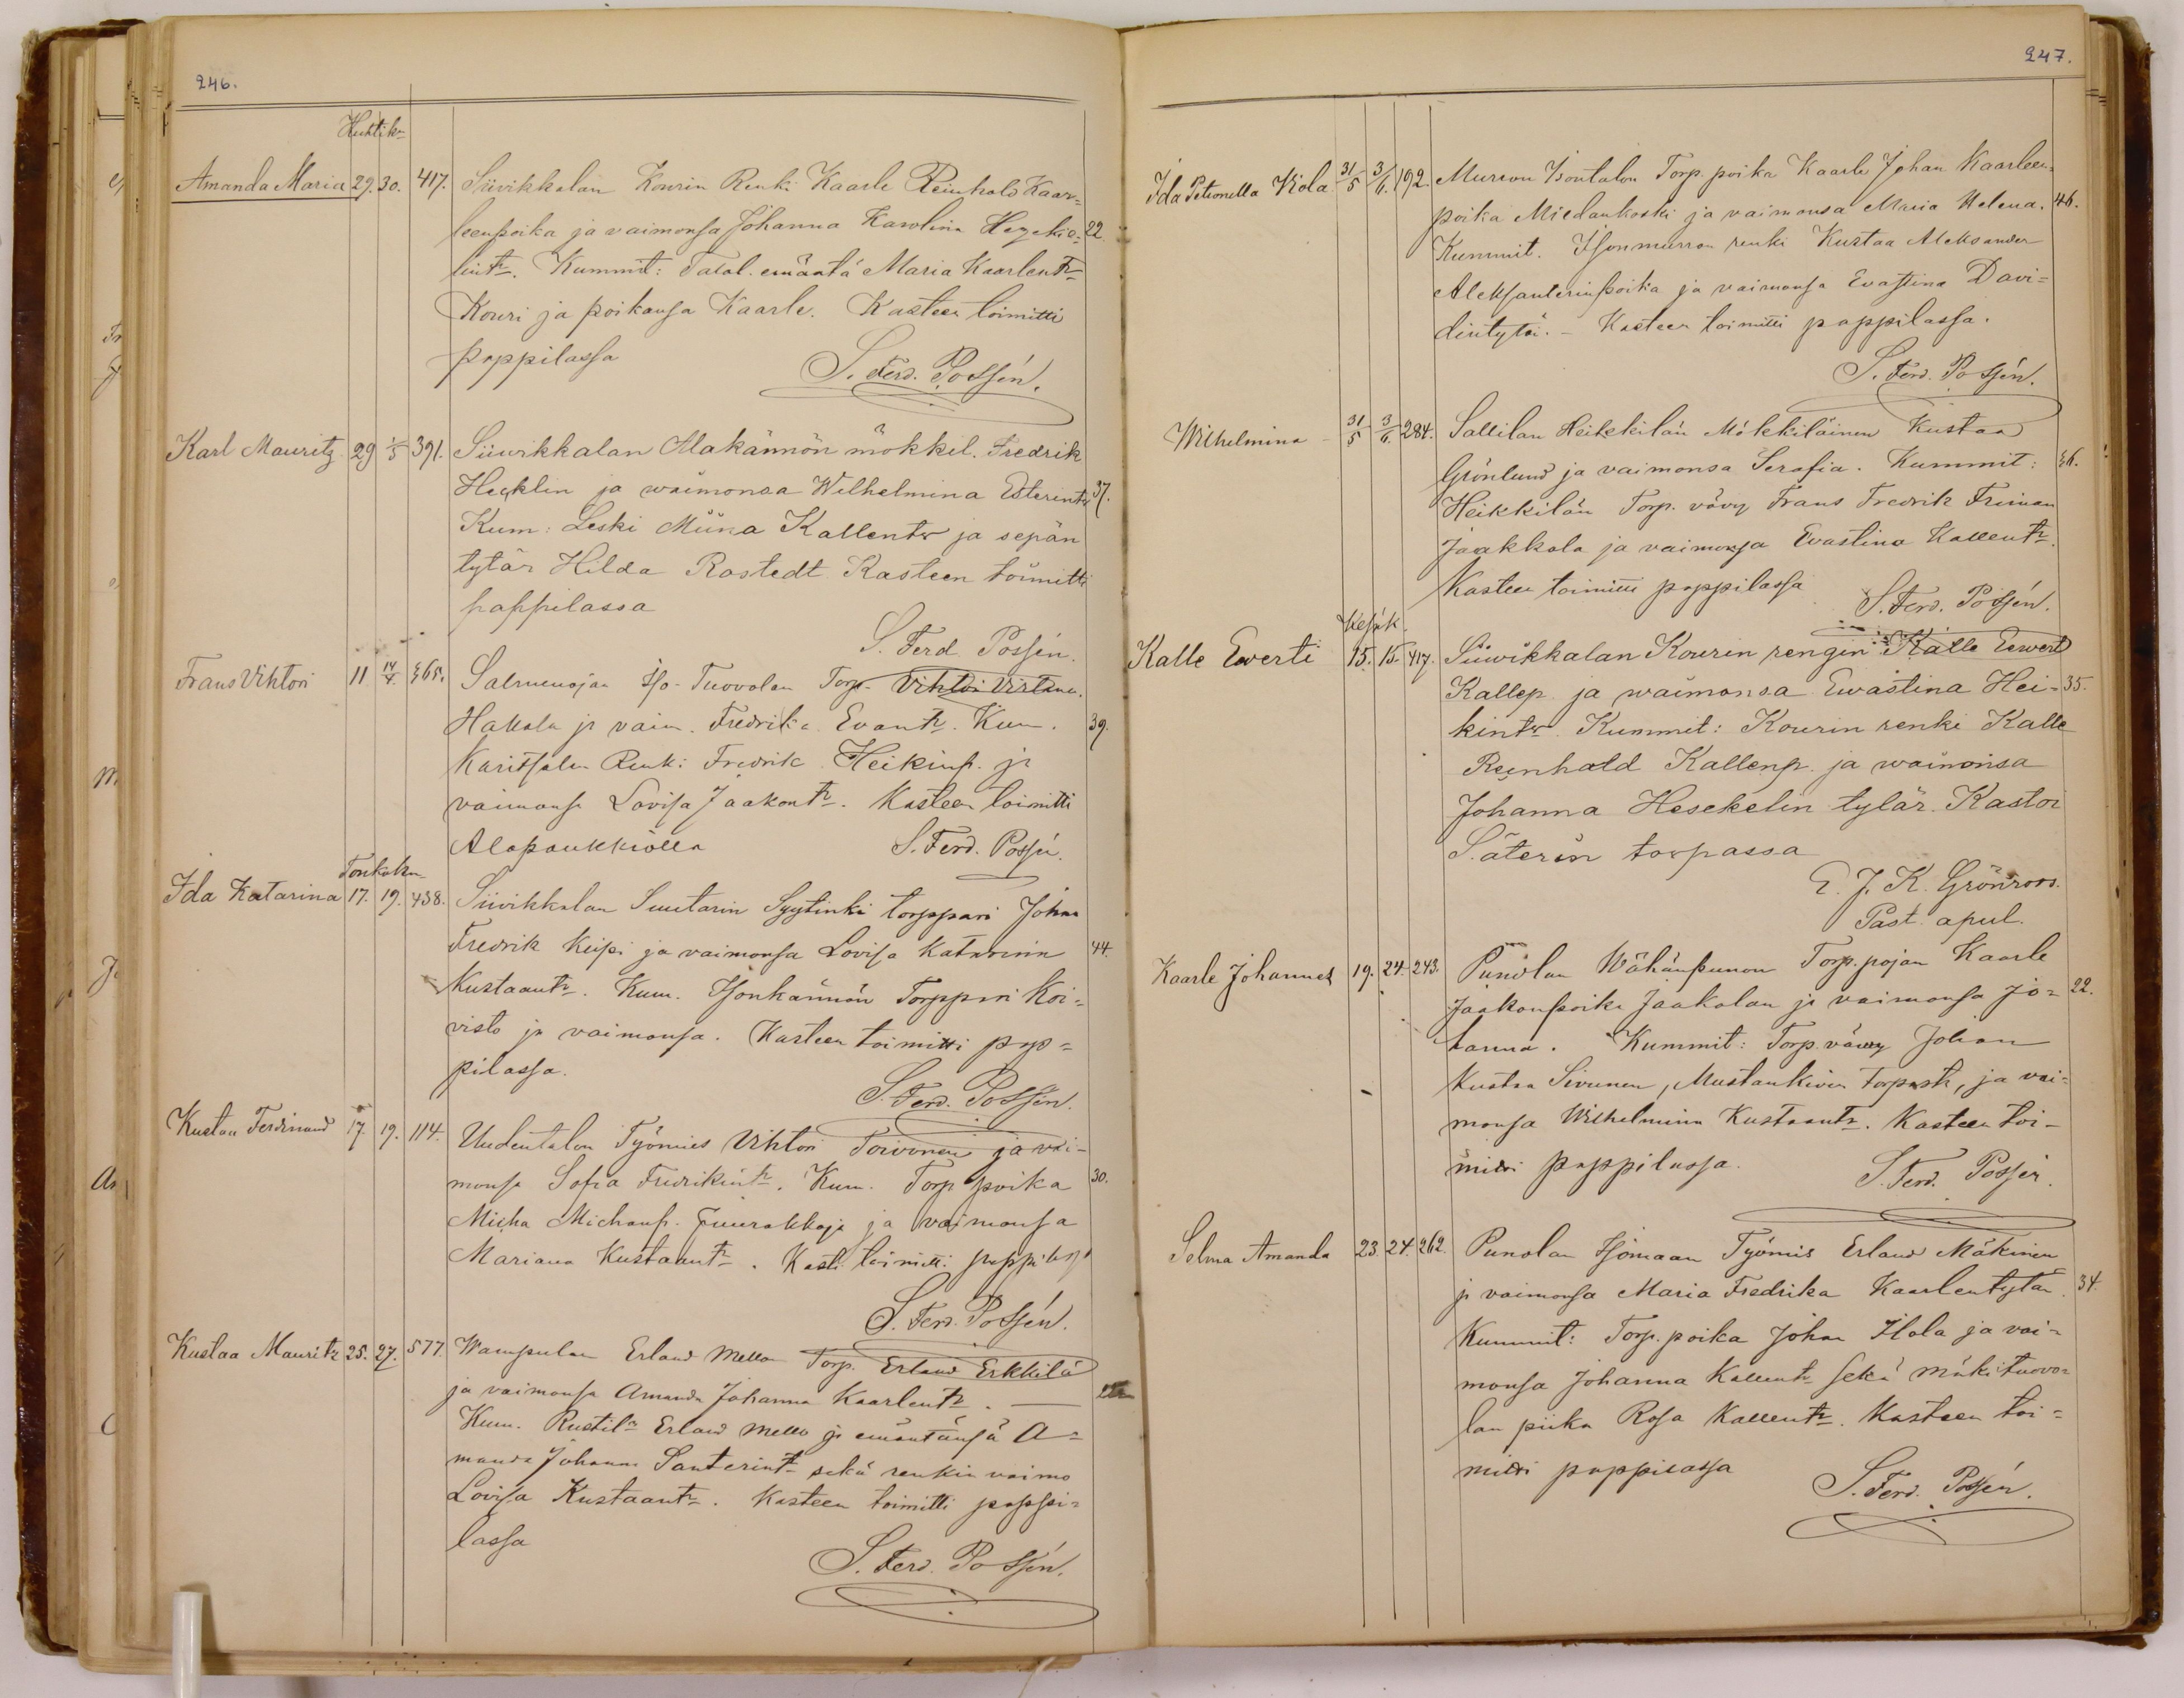 246.
Huhtik.
Amanda Maria 29. 30. 417. Siivikkalan Kourin Renki Kaarle Reinhold Kaar=
leenpoika ja vaimonsa Johanna Karolina Hezekie= 22.
lintr. Kummit: Talol. emäntä Maria Kaarlentr
Kouri ja poikansa Kaarle. Kasteen toimitti
pappilassa
S. Ferd. Possén.
Karl Mauritz 29 1/5 391. Siiwikkalan Alakännön mökkil. Fredrik
Hecklin ja waimonsa Wilhelmina Esterintr 37.
Kum: Leski Miina Kallentr ja sepän
tytär Hilda Rostedt Kasteen toimitti
pappilassa
S. Ferd Possén.
Frans Vihtori 11 14/4. 365. Salmenojan Iso-Tuovolan Torp. Vihtori Virtanen.
Hakala ja vaim. Fredrika Evantr. Kum. 39.
Karitsalan Renki Fredrik Heikinp. ja
vaimonsa Lovisa Jaakontr. Kasteen toimitti
Alapaukkiolla S. Ferd. Possén.
Toukokuu
Ida Katarina 17. 19. 438. Siivikkalan Suutarin Syytinki torppari Johan
Fredrik Keipi ja vaimonsa Lovisa Katariina 44.
Kustaantr. Kum. Isonkännön Torppari Koi=
visto ja vaimonsa. Kasteen toimitti pap=
pilassa.
S. Ferd. Possén.
Kustaa Ferdinand 17. 19. 114. Uudentalon Työmies Vihtori Toivonen ja vai-
monsa Sofia Fredrikintr. Kum. Torp. poika 30.
Micha Michanp. Juurakkoja ja vaimonsa
Mariana Kustaantr. Kast. toimitti pappilassa
S. Ferd. Possén.
Kustaa Mauritz 25. 27. 577. Wampulan Erland Mellon Torp. Erland Erkkilä
ja vaimonsa Amanda Johanna Kaarlentr.
Kum. Rustil. Erland Mello ja emäntänsä A=
manda Johanna Santerintr sekä renkin vaimo
Lovisa Kustaantr. Kasteen toimitti pappi=
lassa
S. Ferd. Possén.
247.
Ida Petronella Kola 31/5 3/6. 192. Murron Isontalon Torp. poika Kaarle Johan Kaarleen
poika Miedankoski ja vaimonsa Maria Helena. 46.
Kummit. Isonmurron renki Kustaa Aleksander
Aleksanterinpoika ja vaimonsa Evastina Davi=
dintytär. - Kasteen toimitti pappilassa.
S. Ferd. Possén.
Wilhelmina 31/5 3/6. 284. Sallilan Heikkilän Mökkiläinen Kustaa
Grönlund ja vaimonsa Serafia. Kummit: 36.
Heikkilän Torp. vävy Frans Fredrik Friman
Jaakkola ja vaimonsa Evastina Kallentr.
Kasteen toimitti pappilassa
S. Ferd. Possén.
Kesäk.
Kalle Ewerti 15. 15. 417. Siiwikkalan Kourin rengin Kalle Eewert
Kallep. ja waimonsa Ewastina Hei= 35.
kintr. Kummit: Kourin renki Kalle
Reinhold Kallenp. ja waimonsa
Johanna Hesekelin tytär. Kastoi
Säterin torpassa
E. J. K. Grönroos.
Past. apul.
Kaarle Johannes 19. 24. 243. Punolan Wähänpunon Torp. pojan Kaarle
Jaakonpoika Jaakolan ja vaimonsa Jo= 22.
hanna. Kummit: Torp. vävy Johan
Kustaa Sivunen, Mustankiven torpasta, ja vai=
monsa Wilhelmina Kustaantr. Kasteen toi-
mitti pappilassa.
S. Ferd. Possén.
Selma Amanda 23. 24. 262. Punolan Isomaan Työmies Erland Mäkinen
ja vaimonsa Maria Fredrika Kaarlentytär. 34.
Kummit: Torp. poika Johan Ilola ja vai=
monsa Johanna Kallentr sekä Mäkituovo=
lan piika Rosa Kallentr. Kasteen toi=
mitti pappilassa
S. Ferd. Possén.